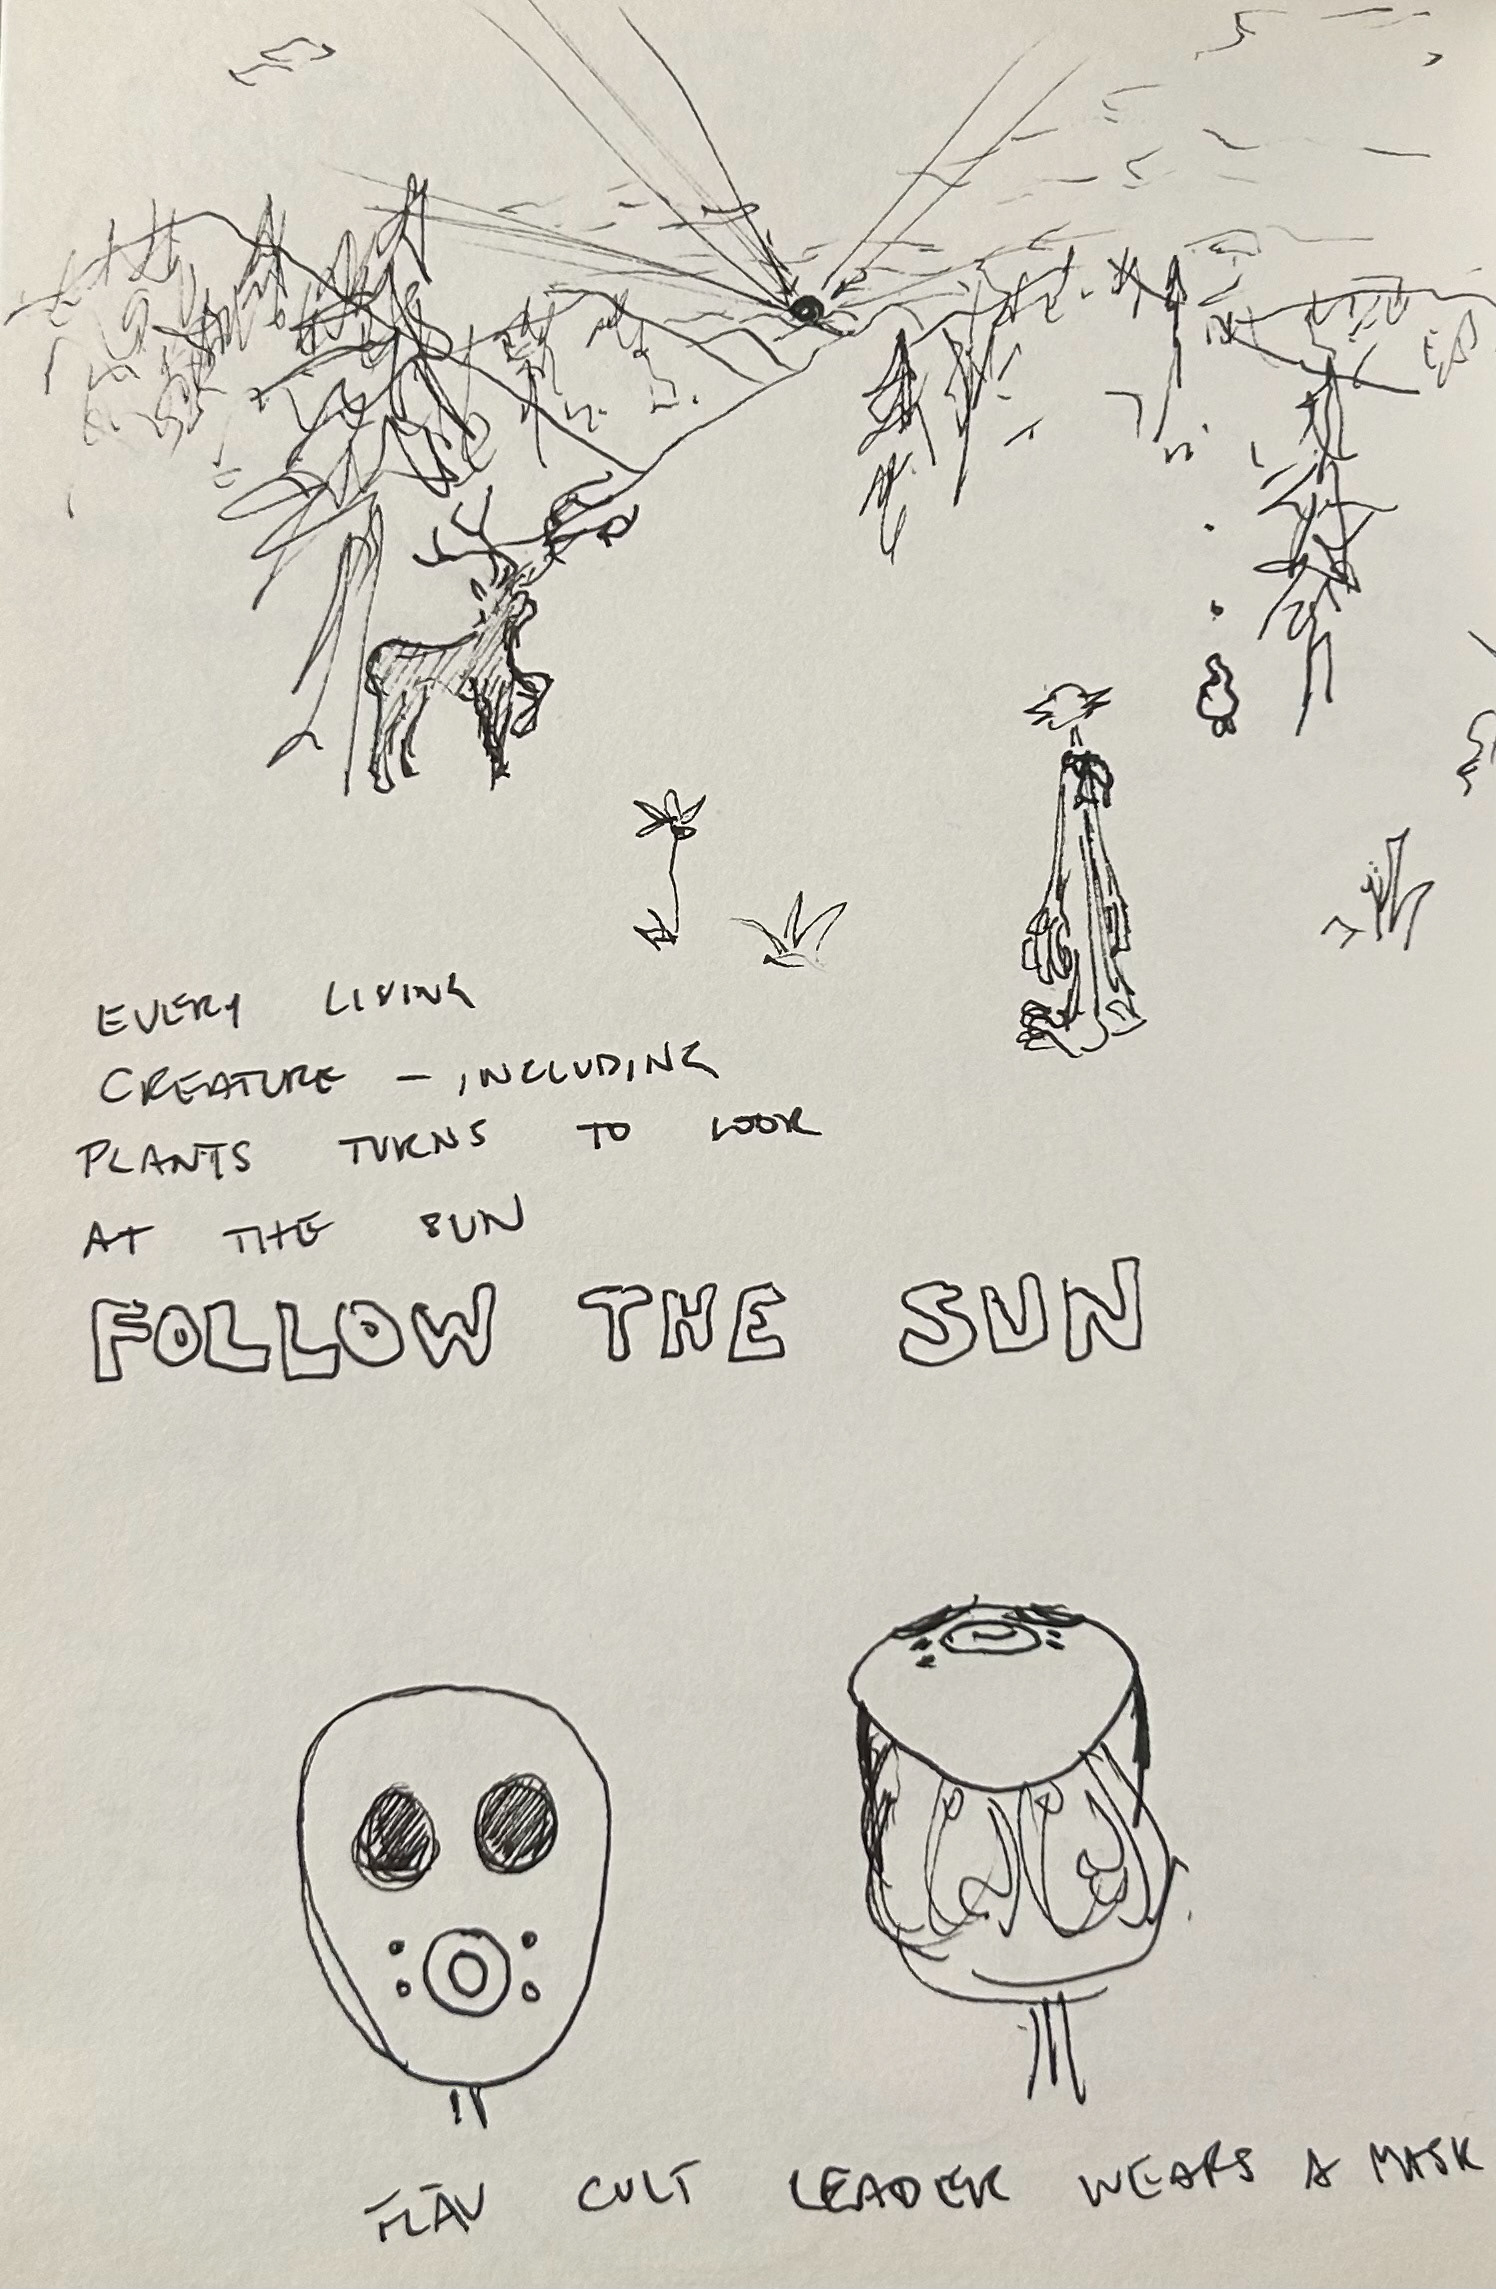 EVERY LIVING
CREATURE – INCLUDING
PLANTS TURNS TO LOOK
AT THE SUN
FOLLOW THE SUN
FLĀV CULT LEADER WEARS A MASK